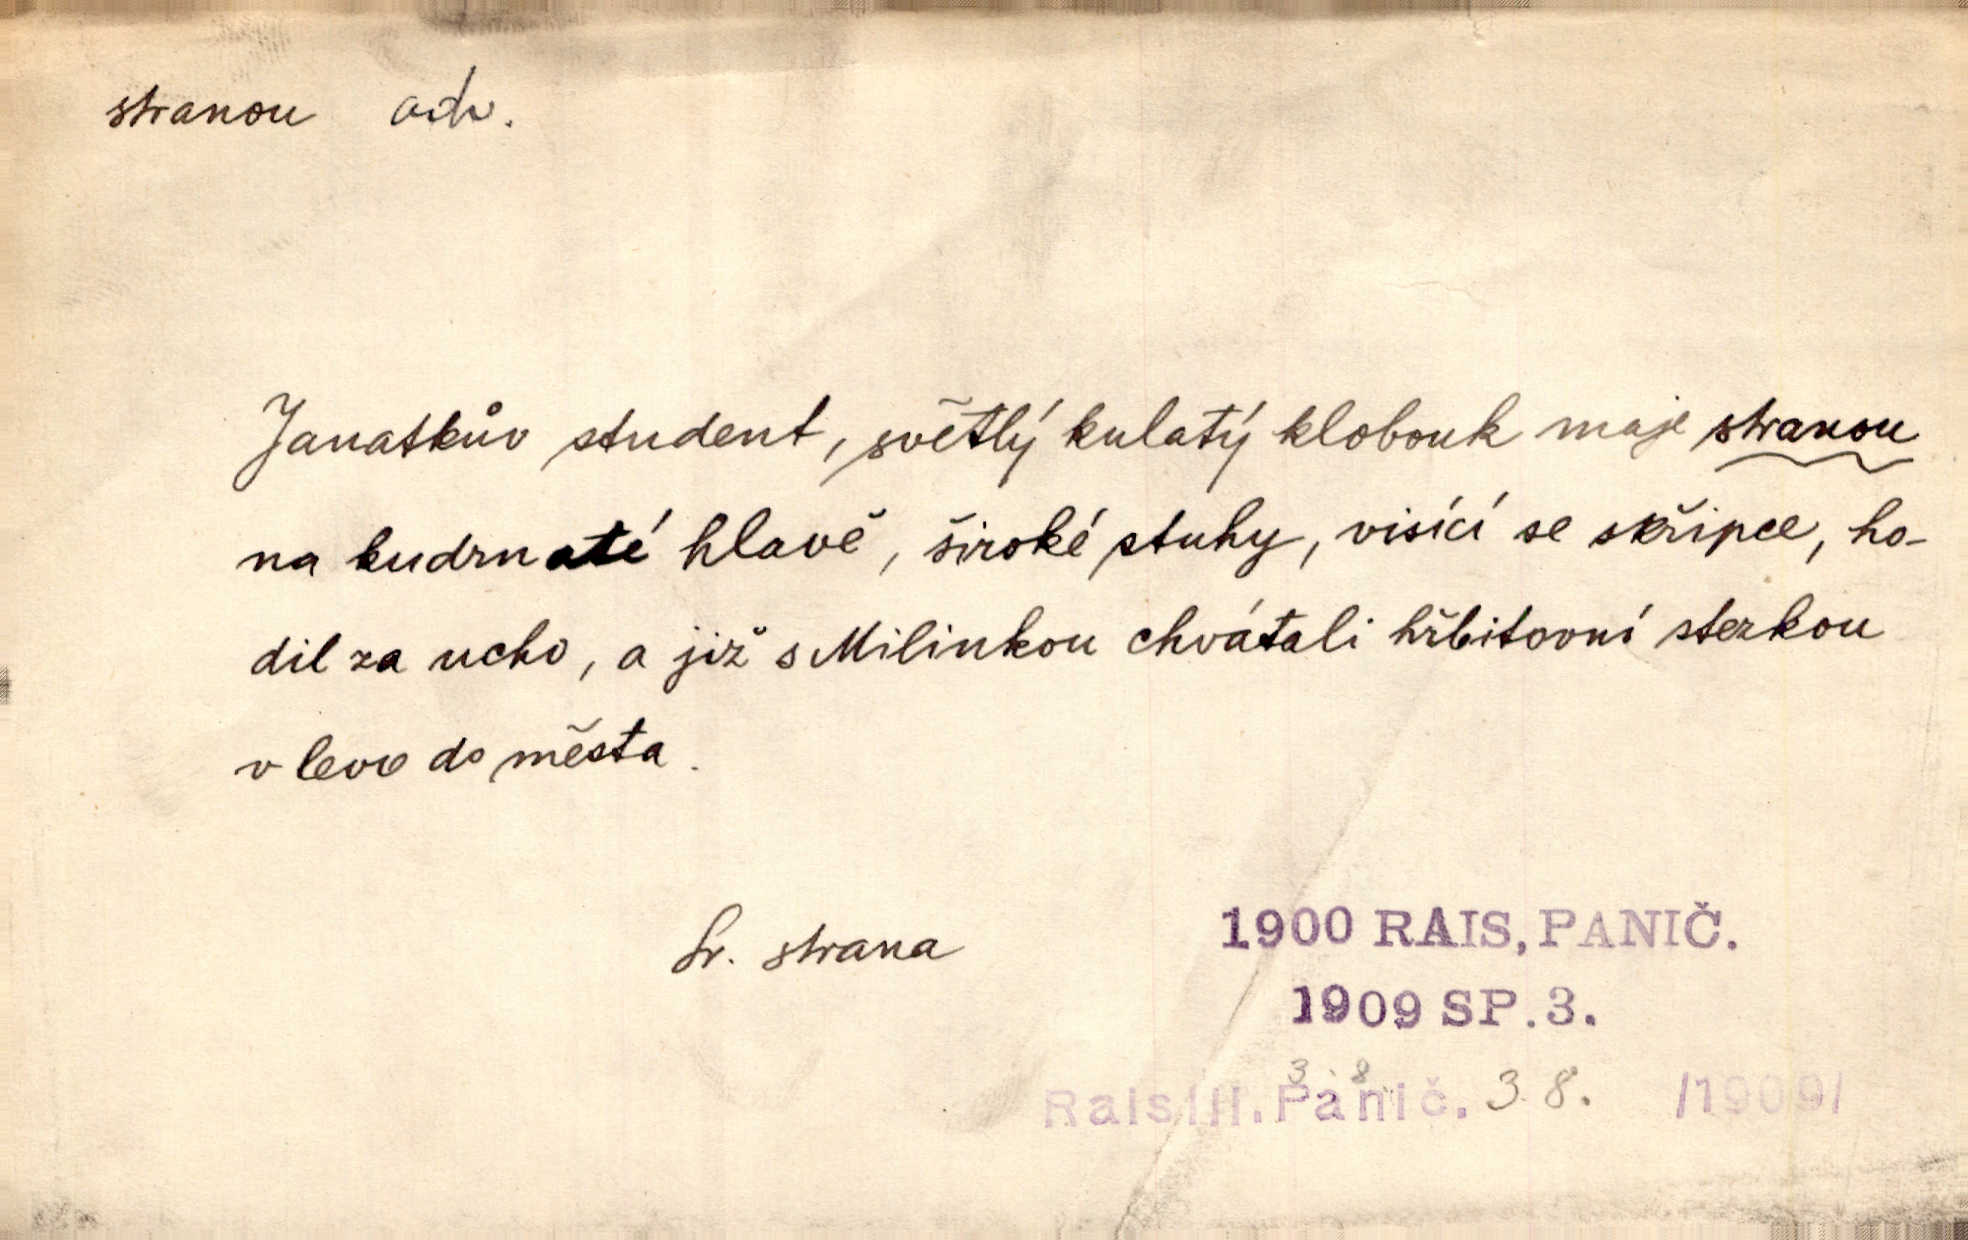 stranou adv.
Janatkův student, světlý kulatý klobouk maje stranou
na kudrnaté hlavě, široké stuhy, visící se skřipce, ho-
dil za ucho, a již s Milinkou chvátali hřbitovní stezkou
v levo do města.
Sr. strana
1900 RAIS, PANIČ.
1909 SP. 3.
3 8
Rais III. Panič. 38. /1909/